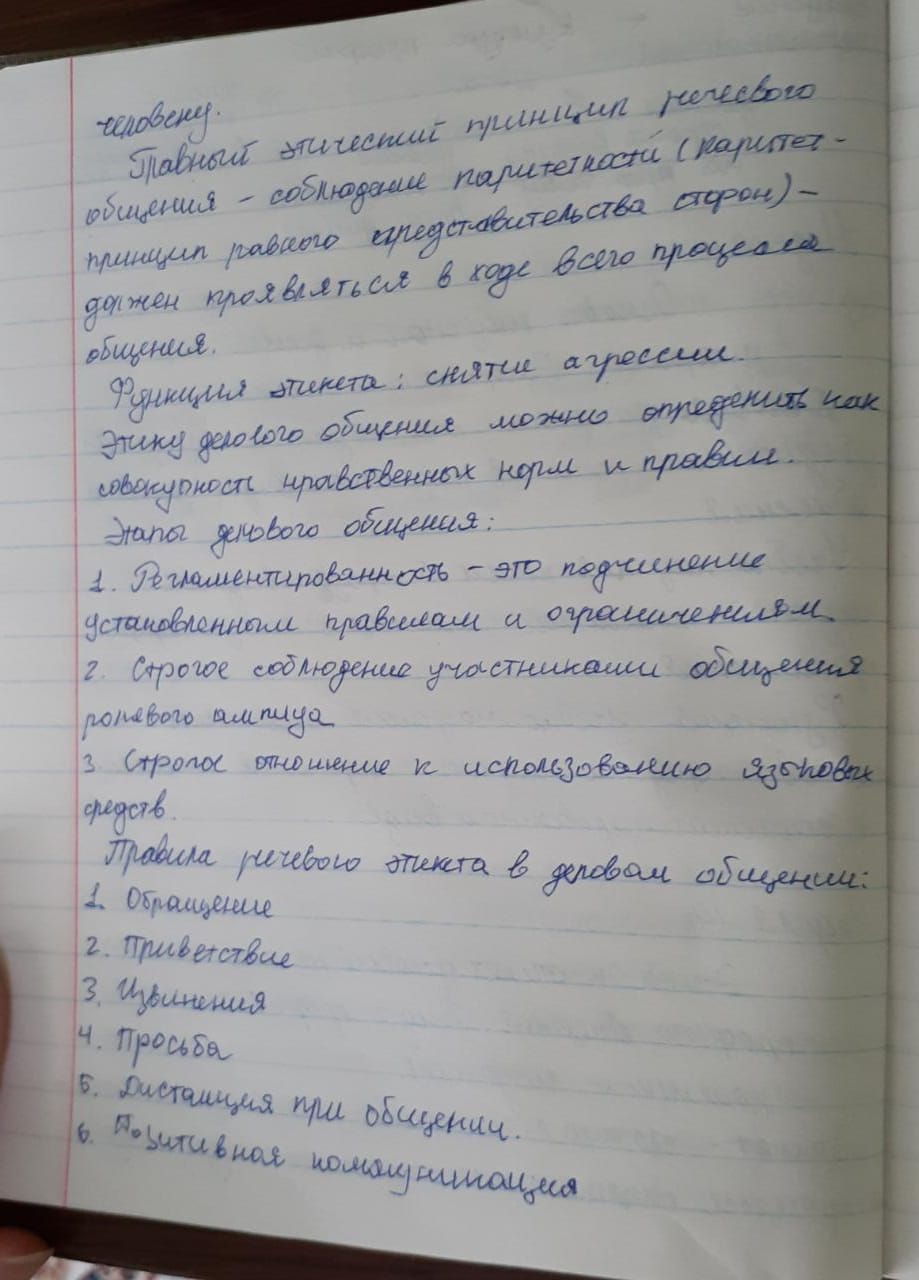 человеку.
Главный этический принцип речевого
общения – соблюдение паритетности (паритет -
принцип равного представительства сторон) –
должен проявляться в ходе всего процесса
общения.
Функция этикета: снятие агрессии.
Этику делового общения можно определить как
совокупность нравственных норм и правил.
Этапы делового общения:
1. Регламентированность – это подчинение
установленным правилам и ограничениям
2. Строгое соблюдение участниками общения
ролевого амплуа
3 Строгое отношение к использованию языковых
средств.
Правила речевого этикета в деловом общении:
1. Обращение
2. Приветствие
3. Извинения
4. Просьба
5. Дистанция при общении.
6. Позитивная коммуникация